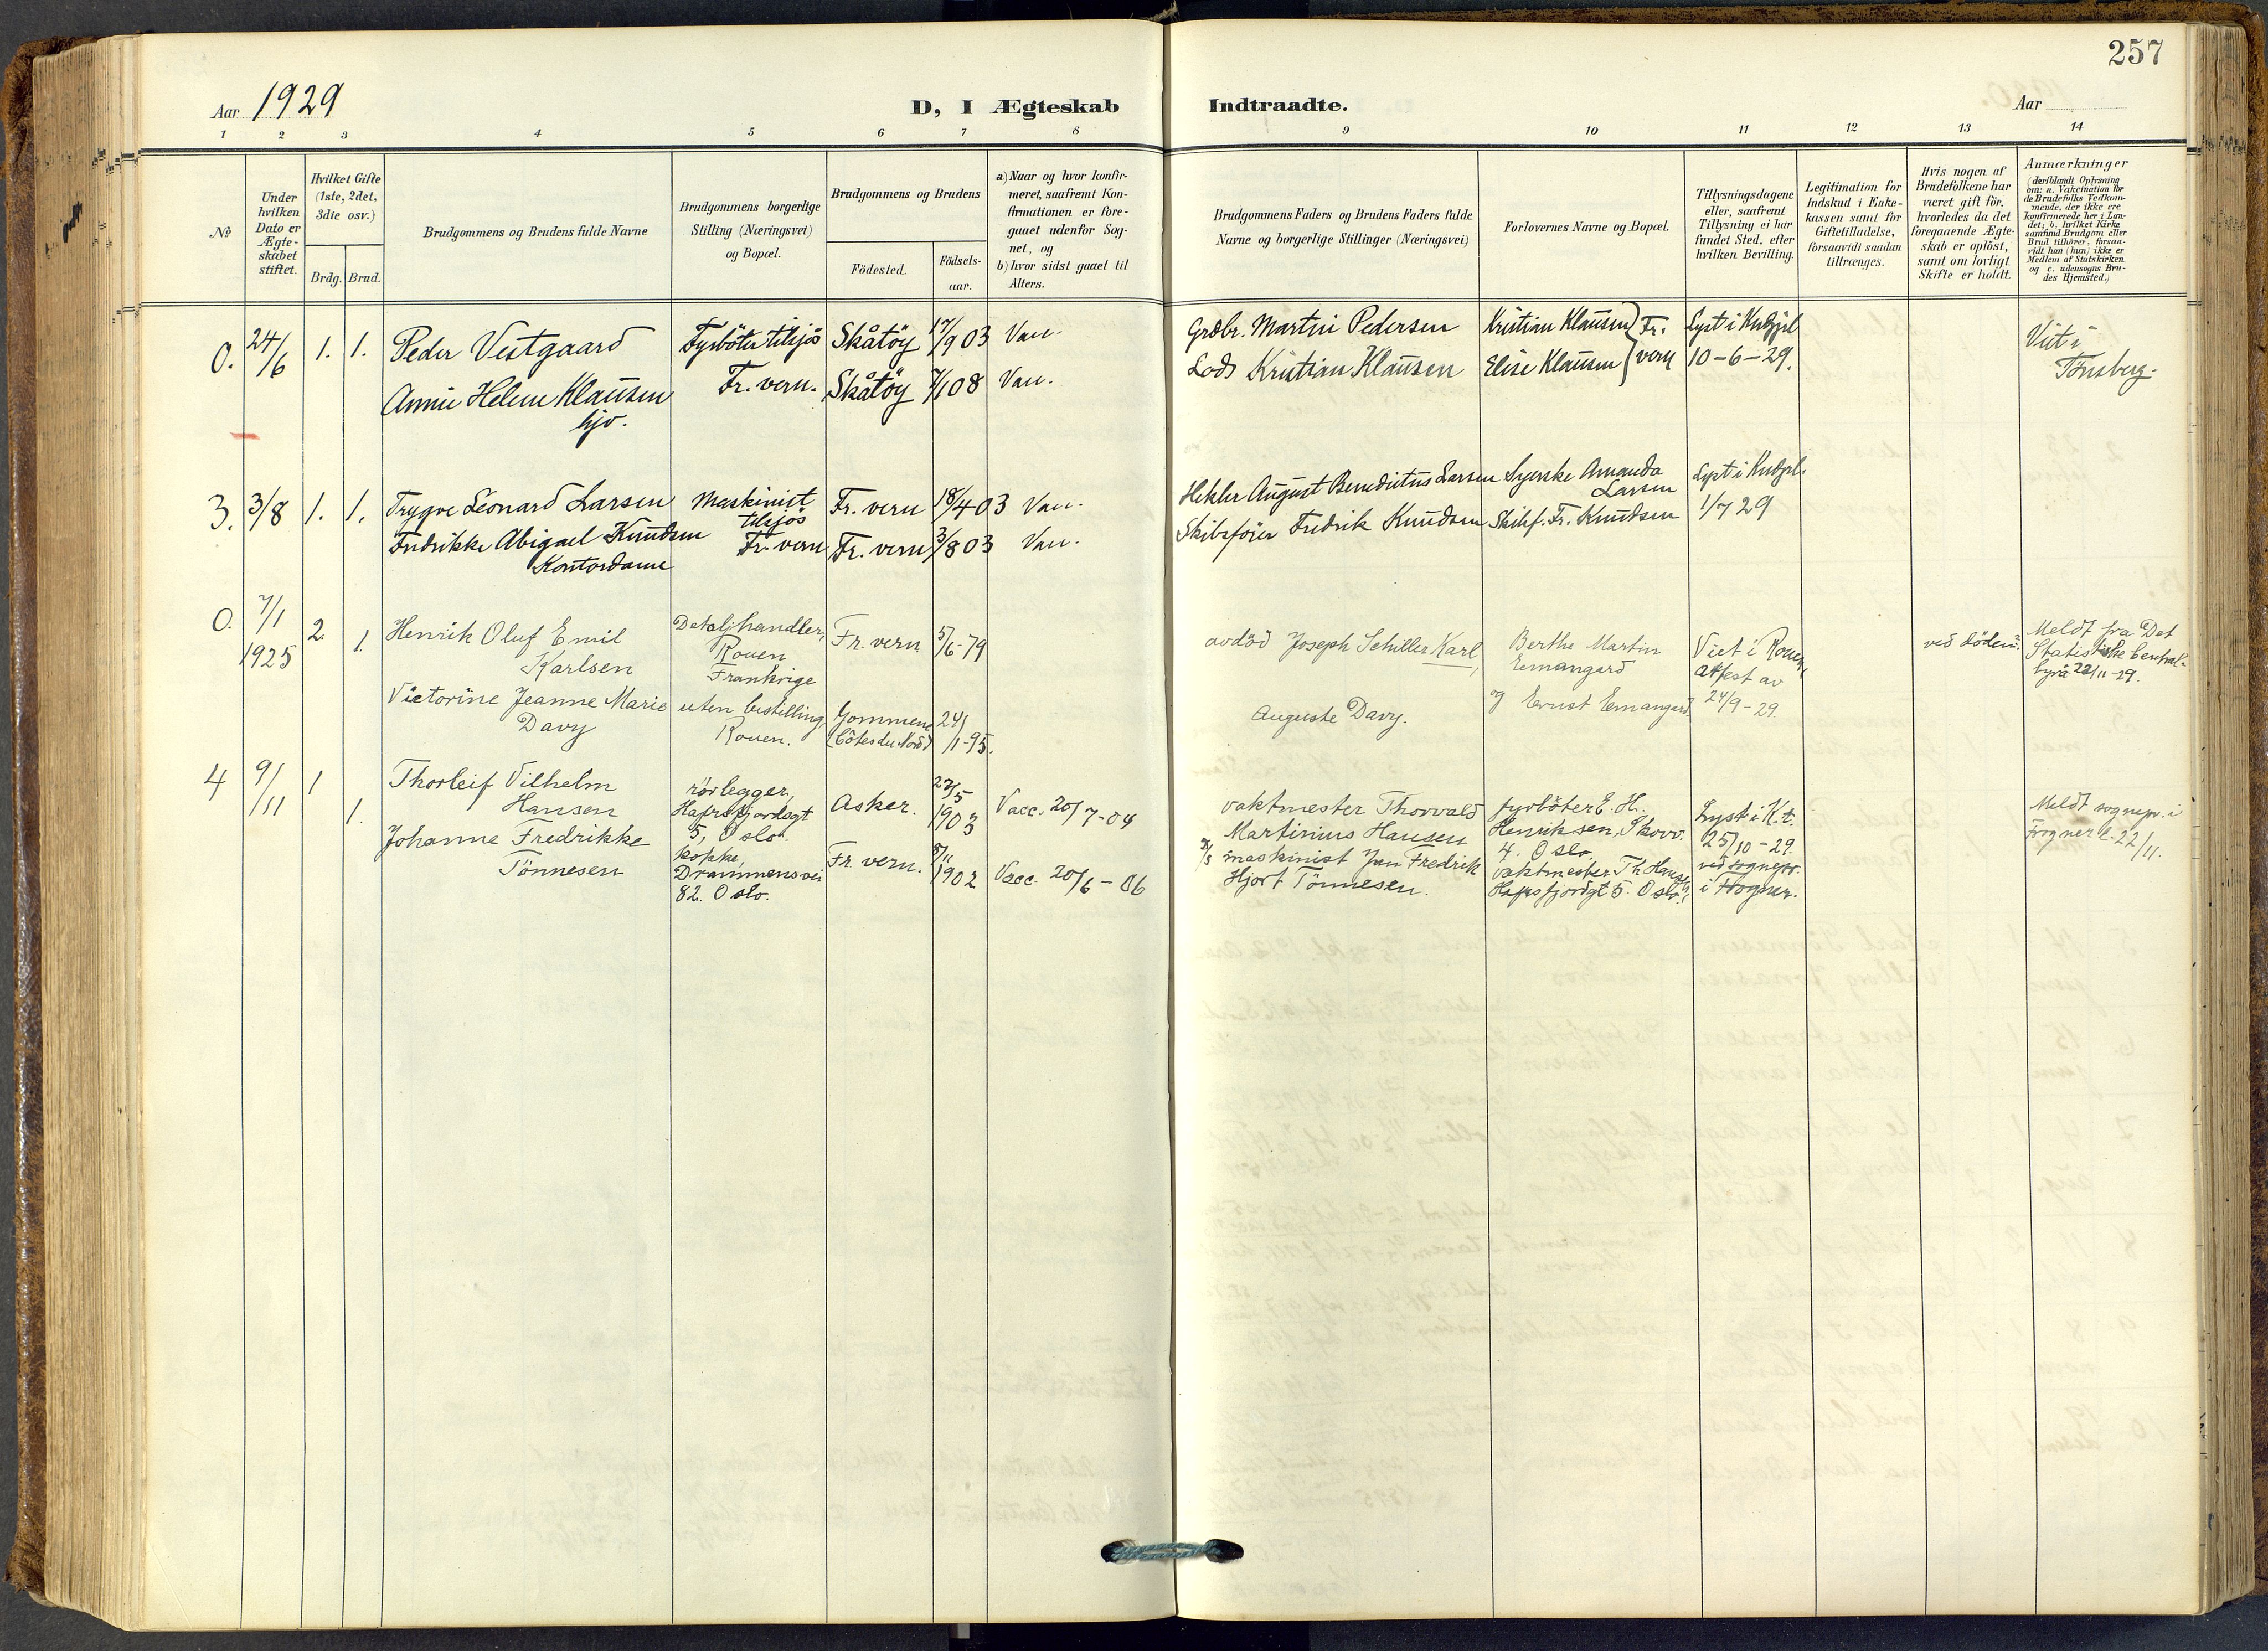 257
Aar 1929
D, I Ægteskab Indtraadte.
Aar
1 2 3 4 5 6 7 8 9 10 11 12 13 14
No
Under hvilken Dato er Ægte-skabet stiftet.
Hvilket Gifte (1ste, 2det, 3die osv.)
Brdg. Brud.
Brudgommens og Brudens fulde Navne
Brudgommens borgerlige Stilling (Næringsvei) og Bopæl.
Brudgommens og Brudens
Födested.
Födsels-aar.
a) Naar og hvor konfir-meret, saafremt Kon-firmationen er fore-gaaet udenfor Sog-net, og
b) hvor sidst gaaet til Alters.
Brudgommens Faders og Brudens Faders fulde Navne og borgerlige Stillinger (Næringsvei)
Forlovernes Navne og Bopæl.
Tillysningsdagene eller, saafremt Tillysning ei har fundet Sted, efter hvilken Bevilling.
Legitimation for Indskud i Enke-kassen samt for Giftetilladelse, forsaavidt saadan tiltrænges.
Hvis nogen af Brudefolkene har været gift för, hvorledes da det foregaaende Ægte-skab er oplöst, samt om lovligt Skifte er holdt.
Anmærkninger (deriblandt Oplysning om: a. Vakcination för de Brudefolks Vedkom-mende, der ikke ere konfirmerede her i Lan-det; b. hvilket Kirke samfund Brudgom eller Brud tilhörer, forsaa-vidt han (hun) ikke er Medlem af Statskirken og c. udensogns Bru-des Hjemsted.)
0. 24/6 1. 1. Peder Vestgaard Fyrböter tilsjös Skåtöy 17/9 03 Van.
Annie Helene Klausen Fr. vern. Skåtöy 7/1 08 Van.
hjv.
Grdbr. Martin Pedersen Kristian Klausen } Fr. Lyst i Kndgjbl
Lods Kristian Klausen Elise Klausen } vern 10-6-29.
Viet i
Tönsberg.
3. 3/8 1. 1. Trygve Leonard Larsen Maskinist Fr. vern 18/4 03 Van.
tilsjös
Fredrikke Abigael Knudsen Fr. vern Fr. vern 3/8 03 Van.
Kontordame
August Benedictus Larsen Syerske Amanda
Larsen
Skibsförer Fredrik Knudsen Skibsf. Fr. Knudsen 1/7 29
0. 7/1
1925 2. 1. Henrik Oluf Emil
Karlsen
Detaljhandler,
Rouen
Frankrige
Fr. vern 5/6-79
Victorine Jeanne Marie
Davy
uten bestilling
Rouen.
Gommené
(Côtes du Nord)
24/1-95.
avdöd Joseph Schiller Karl,
Auguste Davy.
Berthe Martin
Ermangard
og Ernst Ermangard
Viet i Rouen,
Attest av
24/9-29.
ved döden
Meldt fra Det
Statistiske Central-
byrå 22/11-29.
4 9/11 1 1. Thorleif Vilhelm
Hansen
rörlegger,
Hafrsfjordsgt
5, Oslo.
Asker. 27/5
1903
Vacc. 20/7-04
Johanne Fredrikke
Tönnesen
kokke,
Drammensvei
82. Oslo.
Fr. vern. 8/11
1902
Vacc. 20/6-06
vaktmester Thorvald
Martinius Hansen
maskinist Jan Fredrik
Hjort Tönnesen.
fyrböter E. H.
Henriksen, Skovv.
4. Oslo
vaktmester Th. Hansen
Hafrsfjordgt 5. Oslo.
Lyst i K.t.
25/10-29.
ved sognepr.
i Frogner.
Meldt sognepr. i
Frogner 22/11.